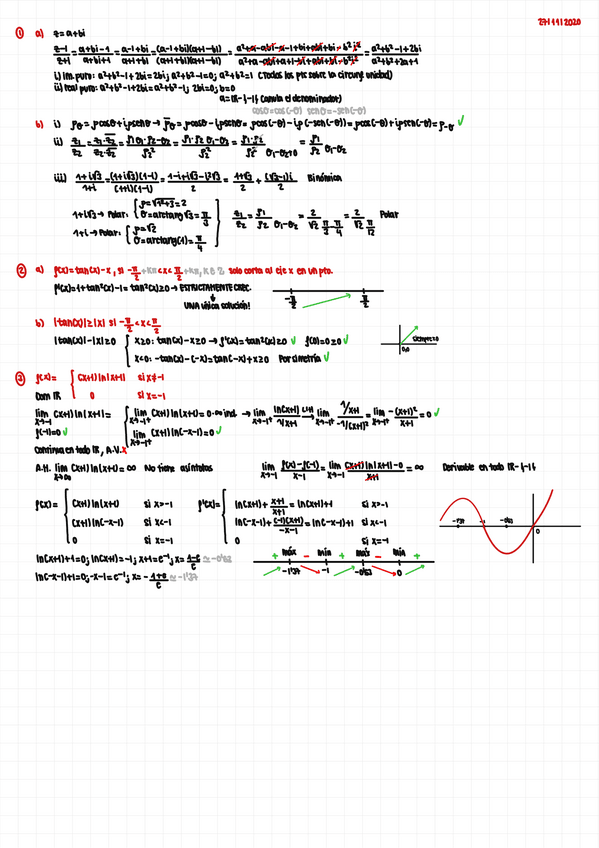 27/11/2020
① a) z=a+bi
z-1/z+1 = a+bi-1/a+bi+1 = a-1+bi/a+1+bi = (a-1+bi)(a+1-bi)/(a+1+bi)(a+1-bi) = a²+a-abi-a-1+bi+abi+bi-b²i²/a²+a-abi+a+1-bi+abi+bi-b²i² = a²+b²-1+2bi/a²+b²+2a+1
i) Im. puro: a²+b²-1+2bi=2bi; a²+b²-1=0; a²+b²=1 (Todos los pts sobre la circunf. unidad)
ii) real puro: a²+b²-1+2bi=a²+b²-1; 2bi=0; b=0
a=ℝ-{-1} (anula el denominador)
cosθ=cos(-θ) senθ=-sen(-θ)
b) i)
ii)
iii) 1+i√3/1+i = (1+i√3)(1-i)/(1+i)(1-i) = 1-i+i√3-i²√3/2 = 1+√3/2 + (√3-1)i/2 Binómica
1+i√3→ Polar: { ρ=√1²+3=2
θ=arctang√3=π/3
1+i→ Polar: { ρ=√2
θ=arctang(1)=π/4
z₁/z₂ = ρ₁/ρ₂ θ₁-θ₂ = 2/√2 π/3-π/4 = 2/√2 π/12 Polar
② a) f(x)=tan(x)-x, si -π/2+kπ<x<π/2+kπ, k∈ℤ solo corta al eje x en un pto.
f'(x)=1+tan²(x)-1=tan²(x)≥0→ ESTRICTAMENTE CREC.
UNA única solución!
-π/2 π/2
b) |tan(x)|≥|x| si -π/2<x<π/2
|tan(x)|-|x|≥0 { x≥0: tan(x)-x≥0→ f'(x)=tan²(x)≥0 ✓ f(0)=0≥0 ✓
x<0: -tan(x)-(-x)=tan(-x)+x≥0 Por simetría ✓
siempre≥0
0,0
③ f(x)= { (x+1)ln|x+1| si x≠-1
Dom ℝ 0 si x=-1
lim x→-1 (x+1)ln|x+1|= { lim x→-1⁺ (x+1)ln(x+1)=0·∞ ind. → lim x→-1⁺ ln(x+1)/1/x+1 L'H→ lim x→-1⁺ 1/x+1/-1/(x+1)² = lim x→-1⁺ -(x+1)²/x+1 =0 ✓
f(-1)=0 ✓ lim x→-1⁻ (x+1)ln(-x-1)=0 ✓
Continua en todo ℝ, A.V. x
A.H. lim x→∞ (x+1)ln(x+1)=∞ No tiene asíntotas lim x→-1 f(x)-f(-1)/x-1 = lim x→-1 (x+1)ln|x+1|-0/x+1 = ∞ Derivable en todo ℝ-{-1}
f(x)= { (x+1)ln(x+1) si x>-1
(x+1)ln(-x-1) si x<-1
0 si x=-1
f'(x)= { ln(x+1)+x+1/x+1=ln(x+1)+1 si x>-1
ln(-x-1)+(-1)(x+1)/-x-1=ln(-x-1)+1 si x<-1
0 si x=-1
-1'37 -1 -0'63 0
ln(x+1)+1=0; ln(x+1)=-1; x+1=e⁻¹; x=1-e/e ≃-0'63
ln(-x-1)+1=0; -x-1=e⁻¹; x=-1+e/e ≃-1'37
+ máx - mín + máx - mín +
-1'37 -1 -0'63 0